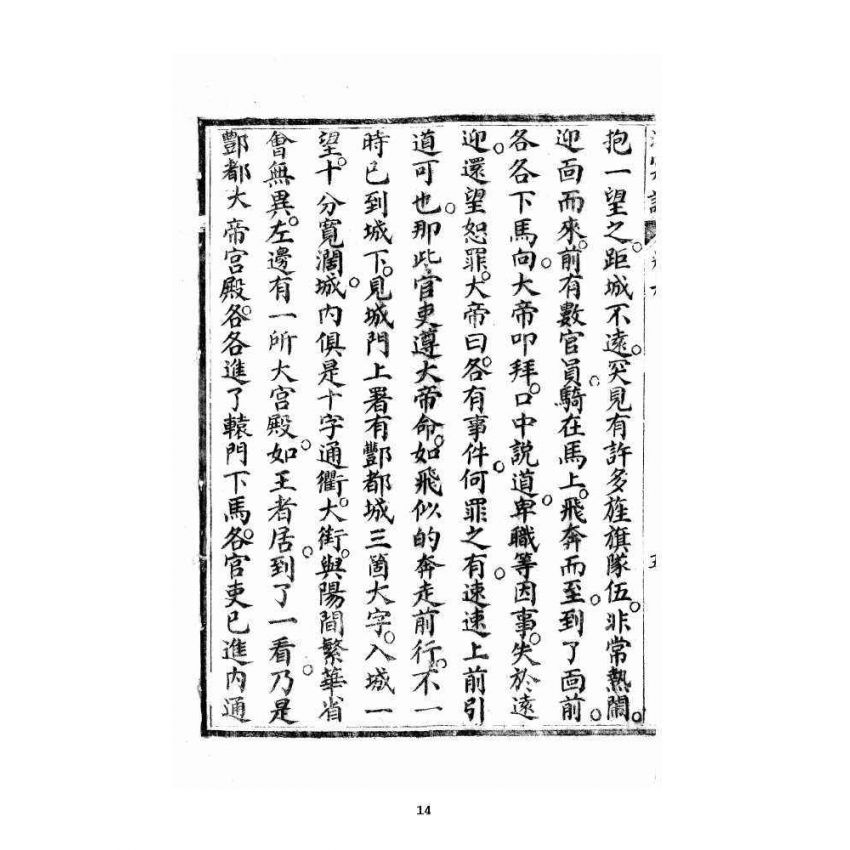 抱一望之。距城不遠。突見有許多旌旗隊伍。非常熱鬧。
迎面而來。前有數官員。騎在馬上。飛奔而至。到了面前。
各各下馬。向大帝叩拜。口中說道。卑職等因事。失於遠
迎。還望恕罪。大帝曰。各有事件。何罪之有。速速上前引
道可也。那些官吏遵大帝命。如飛似的奔走前行。不一
時已到城下。見城門上署有酆都城三箇大字。入城一
望。十分寬濶。城內俱是十字通衢。大街。與陽間繁華省
會無異。左邊有一所大宮殿。如王者居。到了一看。乃是
酆都大帝宮殿。各各進了轅門下馬。各官吏已進內通
14